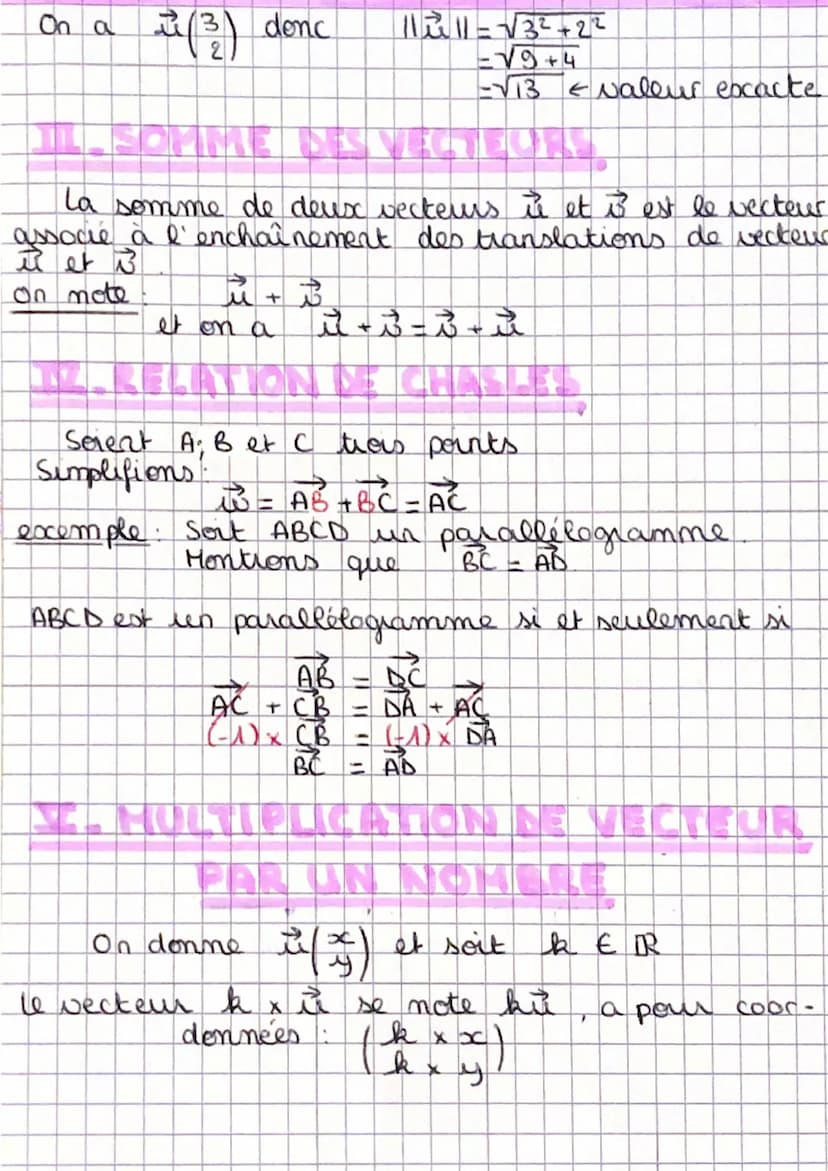 On a u⃗(3 2) donc ||u⃗|| = √3² + 2²
= √9 + 4
= √13 ← valeur exacte
III. SOMME DES VECTEURS
La somme de deux vecteurs u⃗ et v⃗ est le vecteur
associé à l'enchaînement des translations de vecteur
u⃗ et v⃗.
On note : u⃗ + v⃗
et on a u⃗ + v⃗ = v⃗ + u⃗
IV. RELATION DE CHASLES
Soient A; B et C trois points
Simplifions :
w⃗ = AB⃗ + BC⃗ = AC⃗
exemple : Soit ABCD un parallélogramme.
Montrons que BC⃗ = AD⃗
ABCD est un parallélogramme si et seulement si
AB⃗ = DC⃗
AC⃗ + CB⃗ = DA⃗ + AC⃗
(-1) × CB⃗ = (-1) × DA⃗
BC⃗ = AD⃗
V. MULTIPLICATION DE VECTEUR
PAR UN NOMBRE
On donne u⃗(x y) et soit k ∈ ℝ
Le vecteur k × u⃗ se note ku⃗, a pour coor-
données : (k × x
k × y)